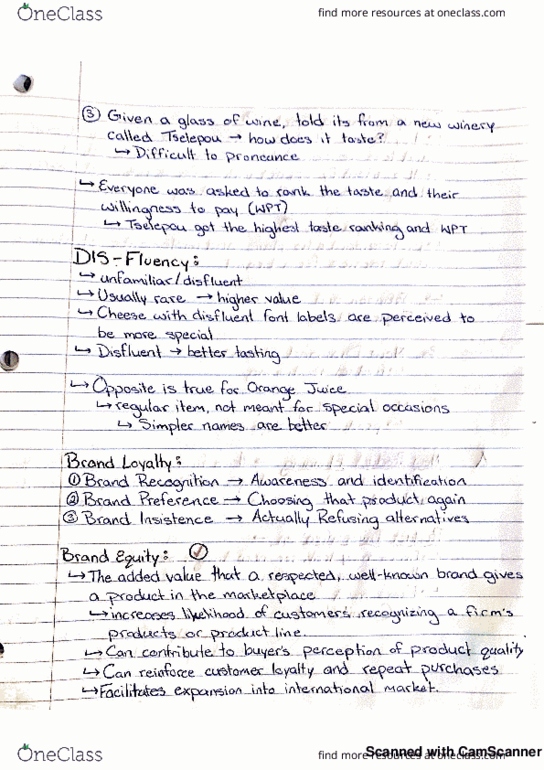 OneClass
find more resources at oneclass.com
③ Given a glass of wine, told its from a new winery
called Tselepou → how does it taste?
↳ Difficult to pronounce
↳ Everyone was asked to rank the taste and their
willingness to pay (WPT)
↳ Tselepou got the highest taste ranking and WPT
DIS-Fluency:
↳ unfamiliar/disfluent
↳ Usually rare → higher value
↳ Cheese with disfluent font labels are perceived to
be more special
↳ Disfluent → better tasting
↳ Opposite is true for Orange Juice
↳ regular item, not meant for special occasions
↳ Simpler names are better
Brand Loyalty:
① Brand Recognition → Awareness and identification
② Brand Preference → Choosing that product again
③ Brand Insistence → Actually Refusing alternatives
Brand Equity: ✓
↳ The added value that a respected, well-known brand gives
a product in the marketplace
↳ increases likelihood of customers recognizing a firm's
products or product line.
↳ Can contribute to buyer's perception of product quality
↳ Can reinforce customer loyalty and repeat purchases
↳ Facilitates expansion into international market.
OneClass
find more resources at oneclass.com
Scanned with CamScanner